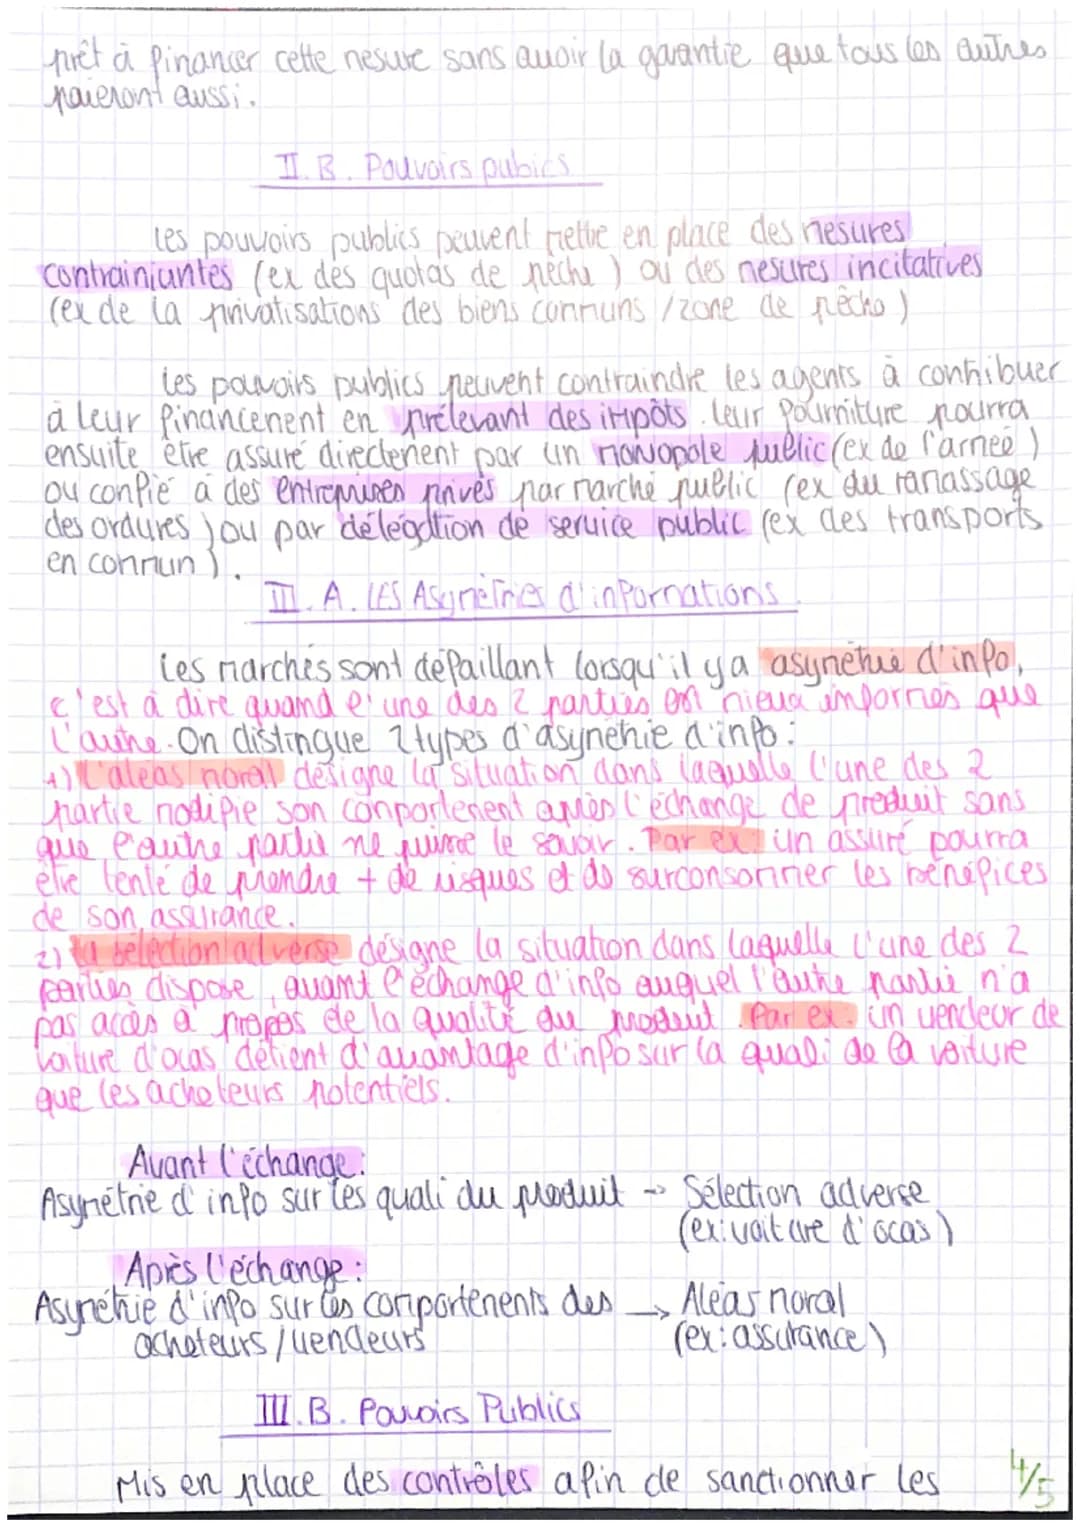 prêt à financer cette mesure sans avoir la garantie que tous les autres
paieront aussi.
II. B. Pouvoirs pubics
Les pouvoirs publics peuvent mettre en place des mesures
contrainiantes (ex des quotas de pêche) ou des mesures incitatives
(ex de la privatisations des biens communs / zone de pêche)
Les pouvoirs publics peuvent contraindre les agents à contribuer
à leur financement en prélevant des impôts. Leur fourniture pourra
ensuite être assuré directement par un monopole public (ex de l'armée)
ou confié à des entreprises privés par marché public (ex du ramassage
des ordures) ou par délégation de service public (ex des transports
en commun).
III. A. LES Asymétries d'informations
Les marchés sont défaillant lorsqu'il y a asymétrie d'info,
c'est à dire quand l'une des 2 parties est mieux informés que
l'autre. On distingue 2 types d'asymétrie d'info :
1) L'aléas moral désigne la situation dans laquelle l'une des 2
partie modifie son comportement après l'échange de produit sans
que l'autre partie ne puisse le savoir. Par ex un assuré pourra
être tenté de prendre + de risques et de surconsommer les bénéfices
de son assurance.
2) La sélection adverse désigne la situation dans laquelle l'une des 2
parties dispose, avant l'échange d'info auquel l'autre partie n'a
pas accès à propos de la qualité du produit. Par ex. un vendeur de
voiture d'ocas détient d'avantage d'info sur la quali de la voiture
que les acheteurs potentiels.
Avant l'échange :
Asymétrie d'info sur les quali du produit → Sélection adverse
(ex: voiture d'ocas)
Après l'échange :
Asymétrie d'info sur les comportements des → Aléas moral
acheteurs / vendeurs (ex: assurance)
III. B. Pouvoirs Publics
Mis en place des contrôles afin de sanctionner les
4/5